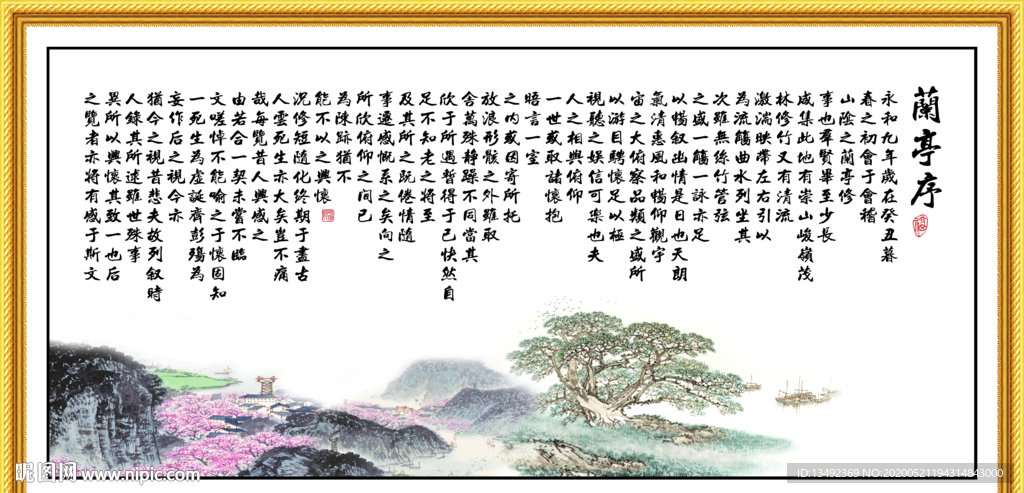 蘭亭序
永和九年歲在癸丑暮
春之初會于會稽
山陰之蘭亭修
事也羣賢畢至少長
咸集此地有崇山峻嶺茂
林修竹又有清流
激湍映帶左右引以
為流觴曲水列坐其
次雖無絲竹管弦
之盛一觴一詠亦足
以暢叙出情是日也天朗
氣清惠風和暢仰觀宇
宙之大俯察品類之盛所
以游目騁懷足以極
視聽之娛信可樂也夫
人之相與俯仰
一世或取諸懷抱
晤言一室
之内或因寄所托
放浪形骸之外雖取
舍萬殊靜躁不同當其
欣于所遇暫得于己快然自
足不知老之將至
及其所之既倦情隨
事遷感慨系之矣向之
所欣俯仰之間已
為陳跡猶不
能不以之興懷
況修短隨化終期于盡古
人雲死生亦大矣豈不痛
哉每覽昔人興感之
由若合一契未嘗不臨
文嗟悼不能喻之于懷固知
一死生為虛誕齊彭殤為
妄作后之視今亦
猶今之視昔悲夫故列叙時
人錄其所述雖世殊事
異所以興懷其致一也后
之覽者亦將有感于斯文
昵图网 www.nipic.com
ID:13492369 NO:20200521194314843000